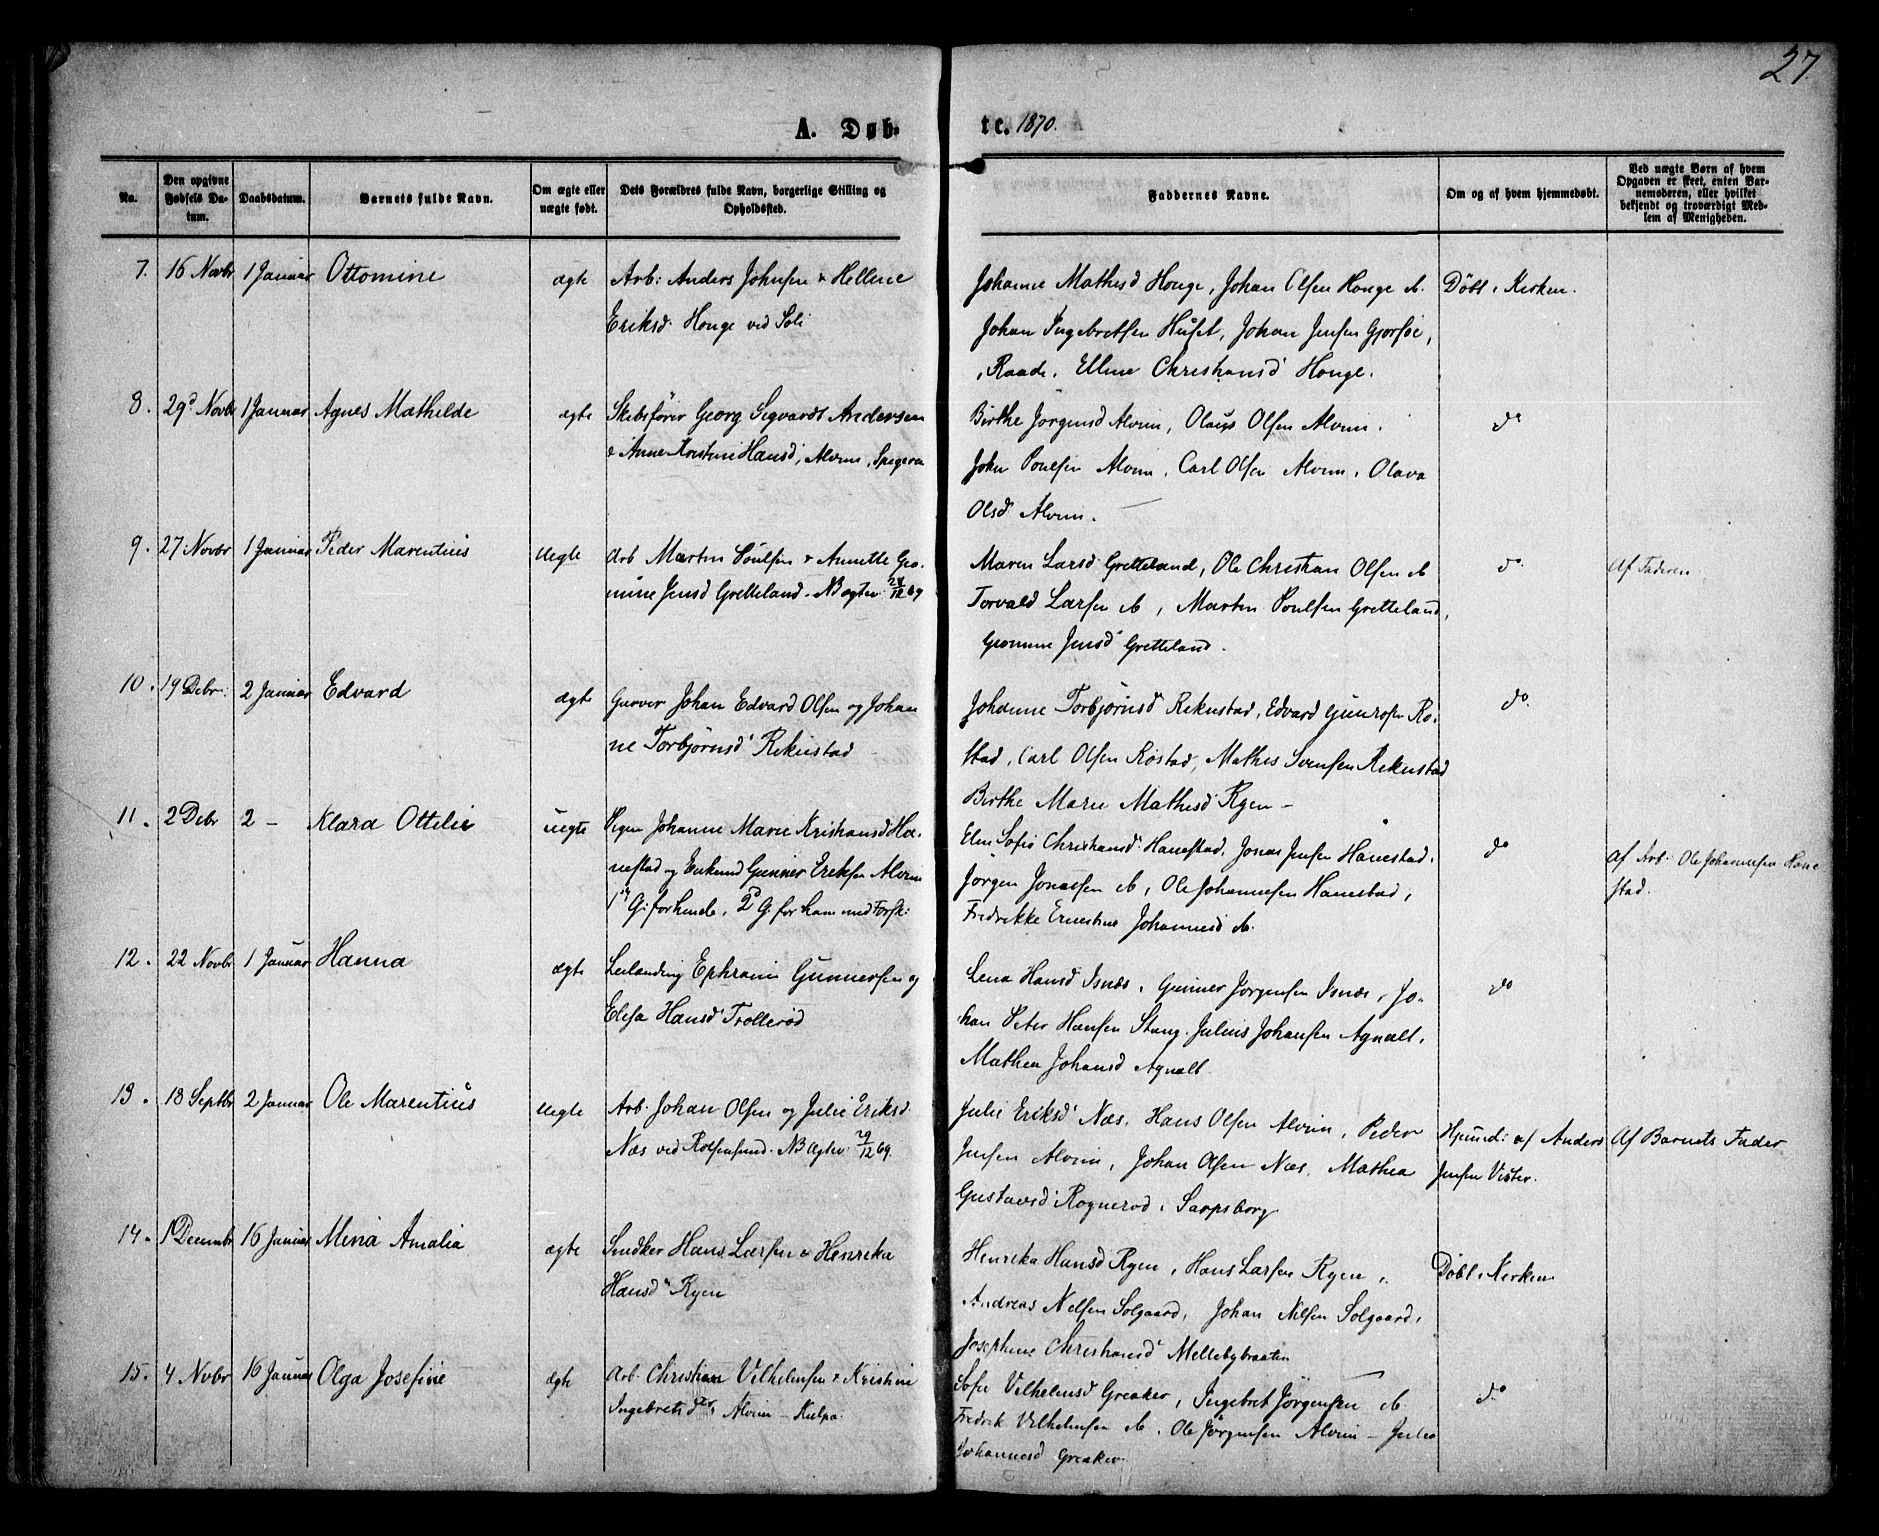 27.
A. Døb-
te. 1870.
No.
Den opgivne Fødsels Da-tum.
Daabsdatum.
Barnets fulde Navn.
Om ægte eller nægte født.
Dets Forældres fulde Navn, borgerlige Stilling og Opholdssted.
Faddernes Navne.
Om og af hvem hjemmedøbt.
Ved nægte Børn af hvem Opgaven er skeet, enten Bar-nemoderen, eller hvilket bekjendt og troværdigt Med-lem af Menigheden.
7. 16 Novbr 1 Januar Ottomine ægte Arb: Anders Johnsen & Helline
Eriksd. Houge ved Soli
Johanne Mathisd Houge, Johan Olsen Houge &.
Johan Ingebretsen Huset, Johan Jensen
, Raade. Elline Christiansd Houge.
Døbt i Kirken.
8. 29d Novbr 1 Januar Agnes Mathilde ægte Skibsfører Georg Sigvardt Andersen
& Anne Kristine Hansd, Alvim,
Birthe Jørgensd Alvim, Olaus Olsen Alvim.
John Poulsen Alvim, Carl Olsen Alvim. Olava
Olsd Alvim.
do
9. 27 Novbr 1 Januar Peder Marentius uegte Arb Martin Poulsen & Annette Geo-
mine Jensd Gretteland. NB ægtev. /12 69
Maren Larsd Gretteland, Ole Christian Olsen &
Torvald Larsen &, Martin Poulsen Gretteland,
Jensd Gretteland.
do
Af Faderen
10. 19 Debr. 2 Januar Edvard ægte Garver Johan Edvard Olsen og Johan
ne Torbjørnsd Rekustad
Johanne Torbjørnsd Rekustad, Edvard Ro-
stad, Carl Olsen Rostad, Mathis Svensen Rekustad
Birthe Marie Mathisd Ryen -
do.
11. 2 Debr 2 - Klara Ottilie uegte Pigen Johanne Marie Kristiansd Ha-
nestad og Enkemd Gunner Eriksen Alvim
1ste G. for hende. 2d G for ham med Forsk:
Elen Sofie Christiansd Hanestad, Jonas Jensen Hanestad.
Jørgen Jonassen &, Ole Johannesen Hanestad,
Fredrikke Ernestine Johannesd &.
do
Af Arb: Ole Johannesen Hane
stad.
12. 22 Novbr 1 Januar Hanna ægte Leilænding Ephraim Gunnersen og
Elisa Hansd Trollerød
Lena Hansd Isnæs, Gunner Jørgensen Isnæs, Jo-
han Peter Hansen Stang. Julius Johansen Agnalt,
Mathea Johansd Agnalt.
do
13. 18 Septbr 2 Januar Ole Marentius uegte Arb. Johan Olsen og Julie Eriksd.
Næs ved Rolfsøsund. NB ægtev. /12 69.
Julie Eriksd Næs. Hans Olsen Alvim, Peder
Jensen Alvim, Johan Olsen Næs, Mathea
Gustavsd Rognerød, Sarpsborg
Hjemmed: af Anders
Jensen Vister.
Af Barnets Fader
14. 1 Decembr 16 Januar Mina Amalia ægte Snedker Hans Larsen & Henrika
Hansd Ryen
Henrika Hansd Ryen, Hans Larsen Ryen,
Andreas Nilsen Solgaard, Johan Nilsen Solgaard,
Josephine Christiansd Mellebybraaten
Døbt i Kirken
15. 4 Novbr 16 Januar Olga Josefine ægte Arb. Christian Vilhelmsen & Kristine
Ingebretsdtr, Alvim - Kulpa.
Sofie Vilhelmsd Greaker, Ingebret Jørgensen &.
Fredrik Vilhelmsen &. Ole Jørgensen Alvim - Julia
Johannesd Greaker.
do